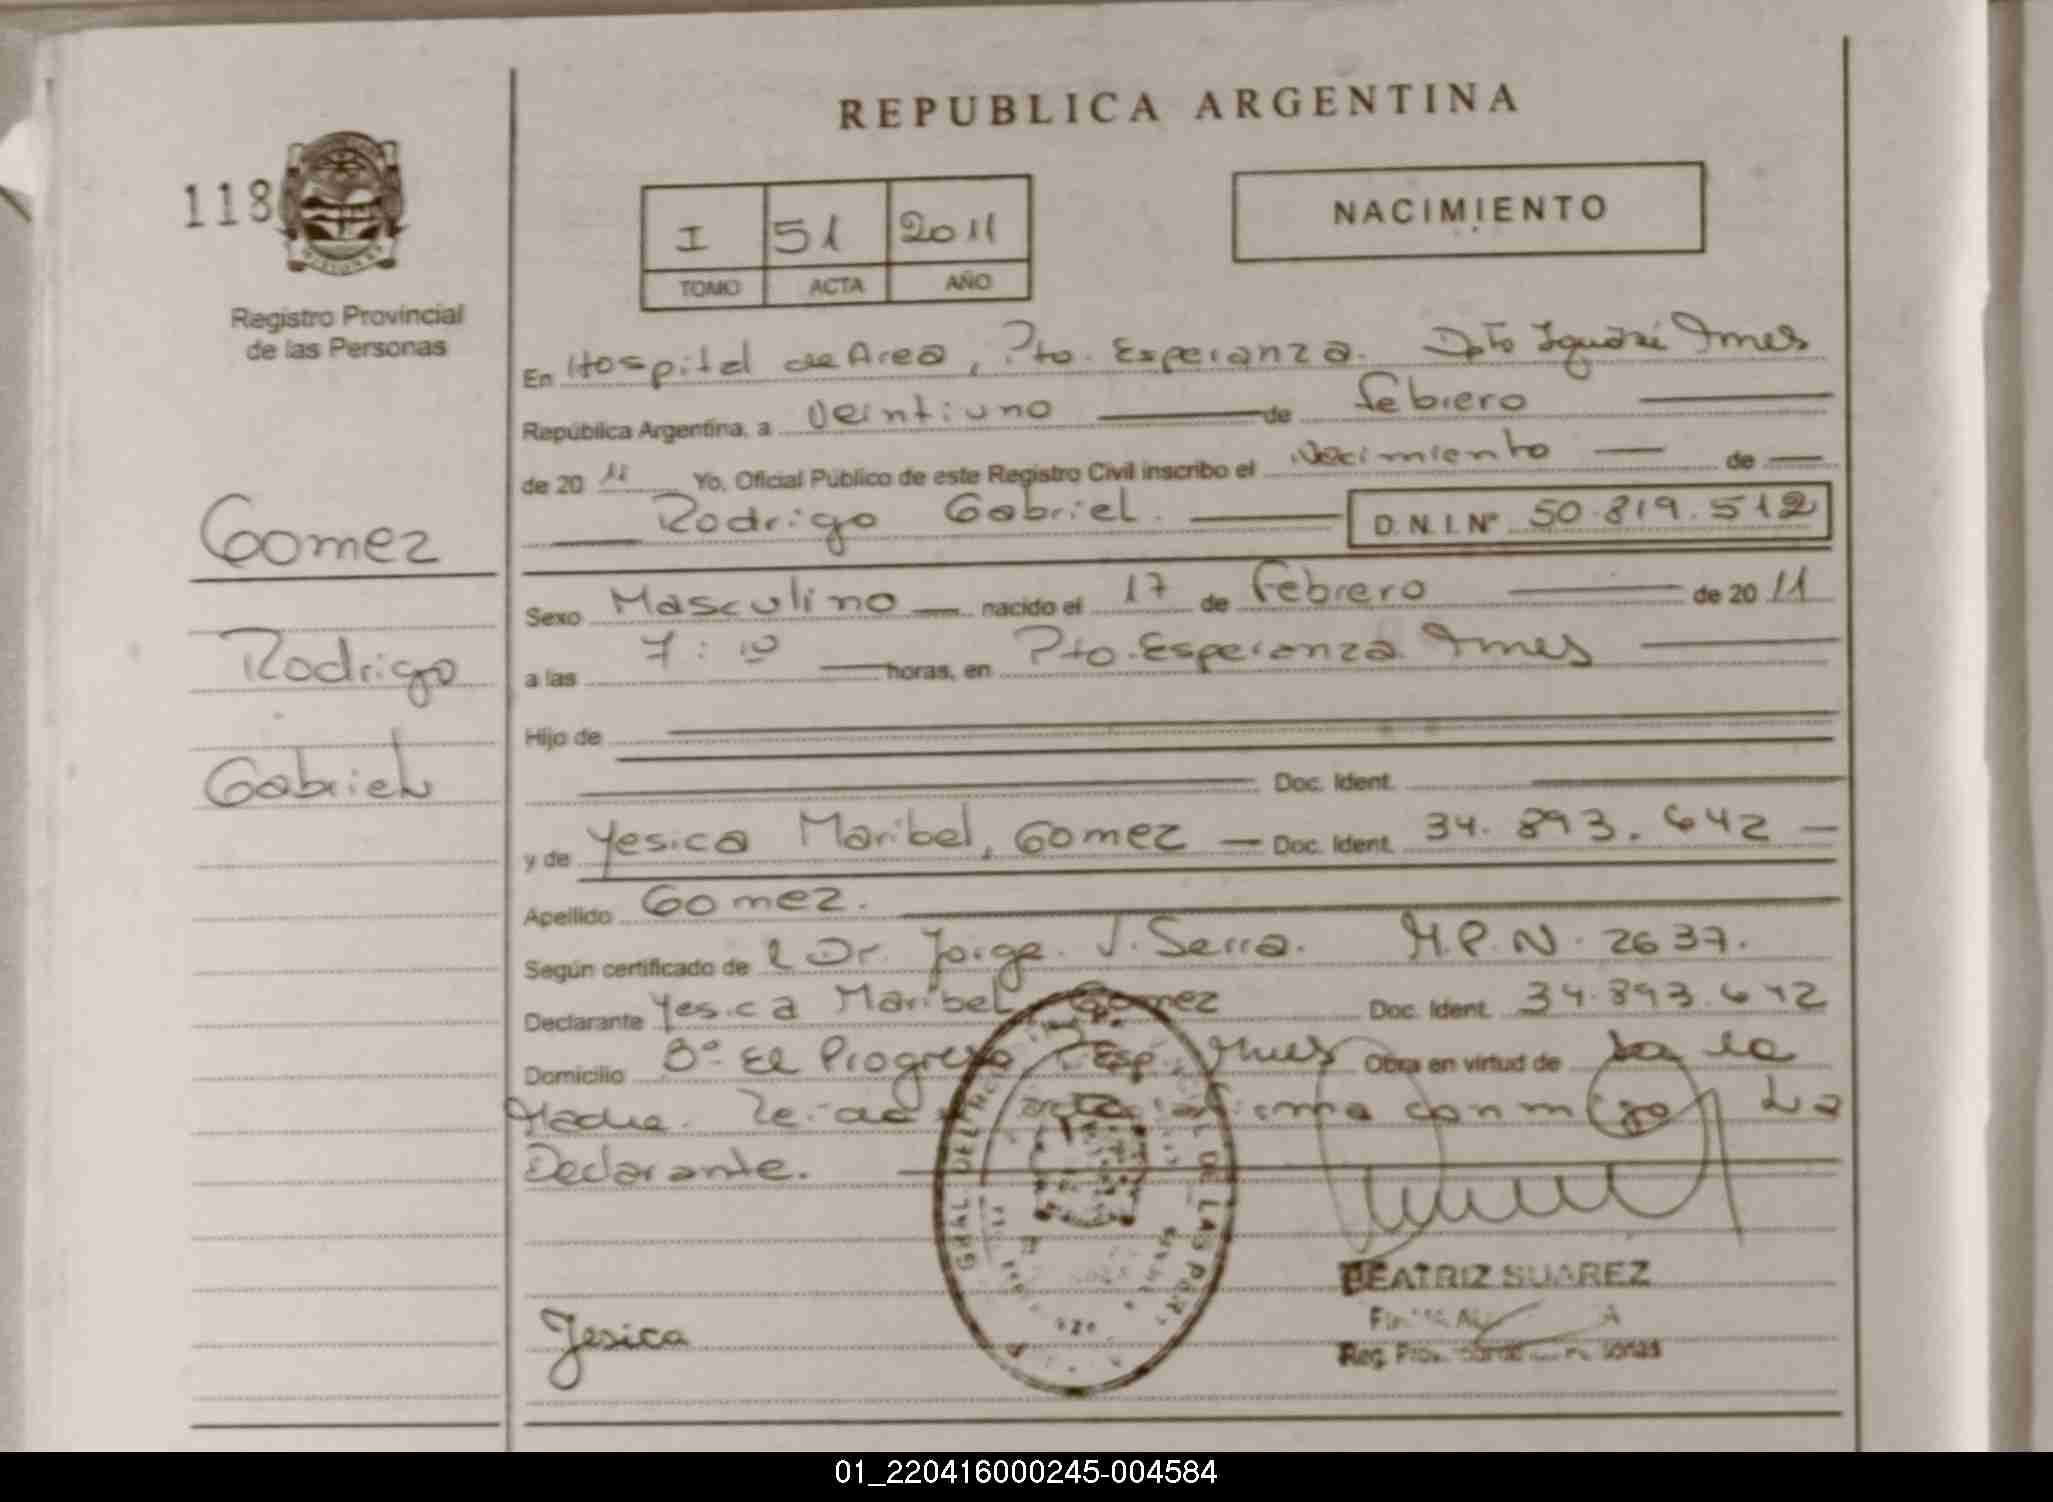 REPUBLICA ARGENTINA
118
I 51 2011
TOMO ACTA AÑO
NACIMIENTO
MISIONES
Registro Provincial
de las Personas
En Hospital de Area, Pto. Esperanza. Dpto Iguazú Mnes
República Argentina, a veintiuno de febrero
de 20 11 Yo, Oficial Público de este Registro Civil inscribo el Nacimiento de
Rodrigo Gabriel. D.N.I. Nº 50.819.512
Gomez
Rodrigo
Gabriel
Sexo Masculino nacido el 17 de febrero de 20 11
a las 7:10 horas, en Pto. Esperanza Mnes
Hijo de
Doc. Ident.
y de Yesica Maribel, Gomez Doc. Ident. 34.893.642
Apellido Gomez.
Según certificado de Dr. Jorge. J. Serra. M.P.N. 2637.
Declarante Yesica Maribel Gomez Doc. Ident. 34.893.642
Domicilio Bº El Progreso P. Esp. Mnes Obra en virtud de la
Madre. acta firma conmigo La
Declarante.
GRAL DEL DE LAS PERS
BEATRIZ SUAREZ
Yesica
Reg. Prov.
01_220416000245-004584